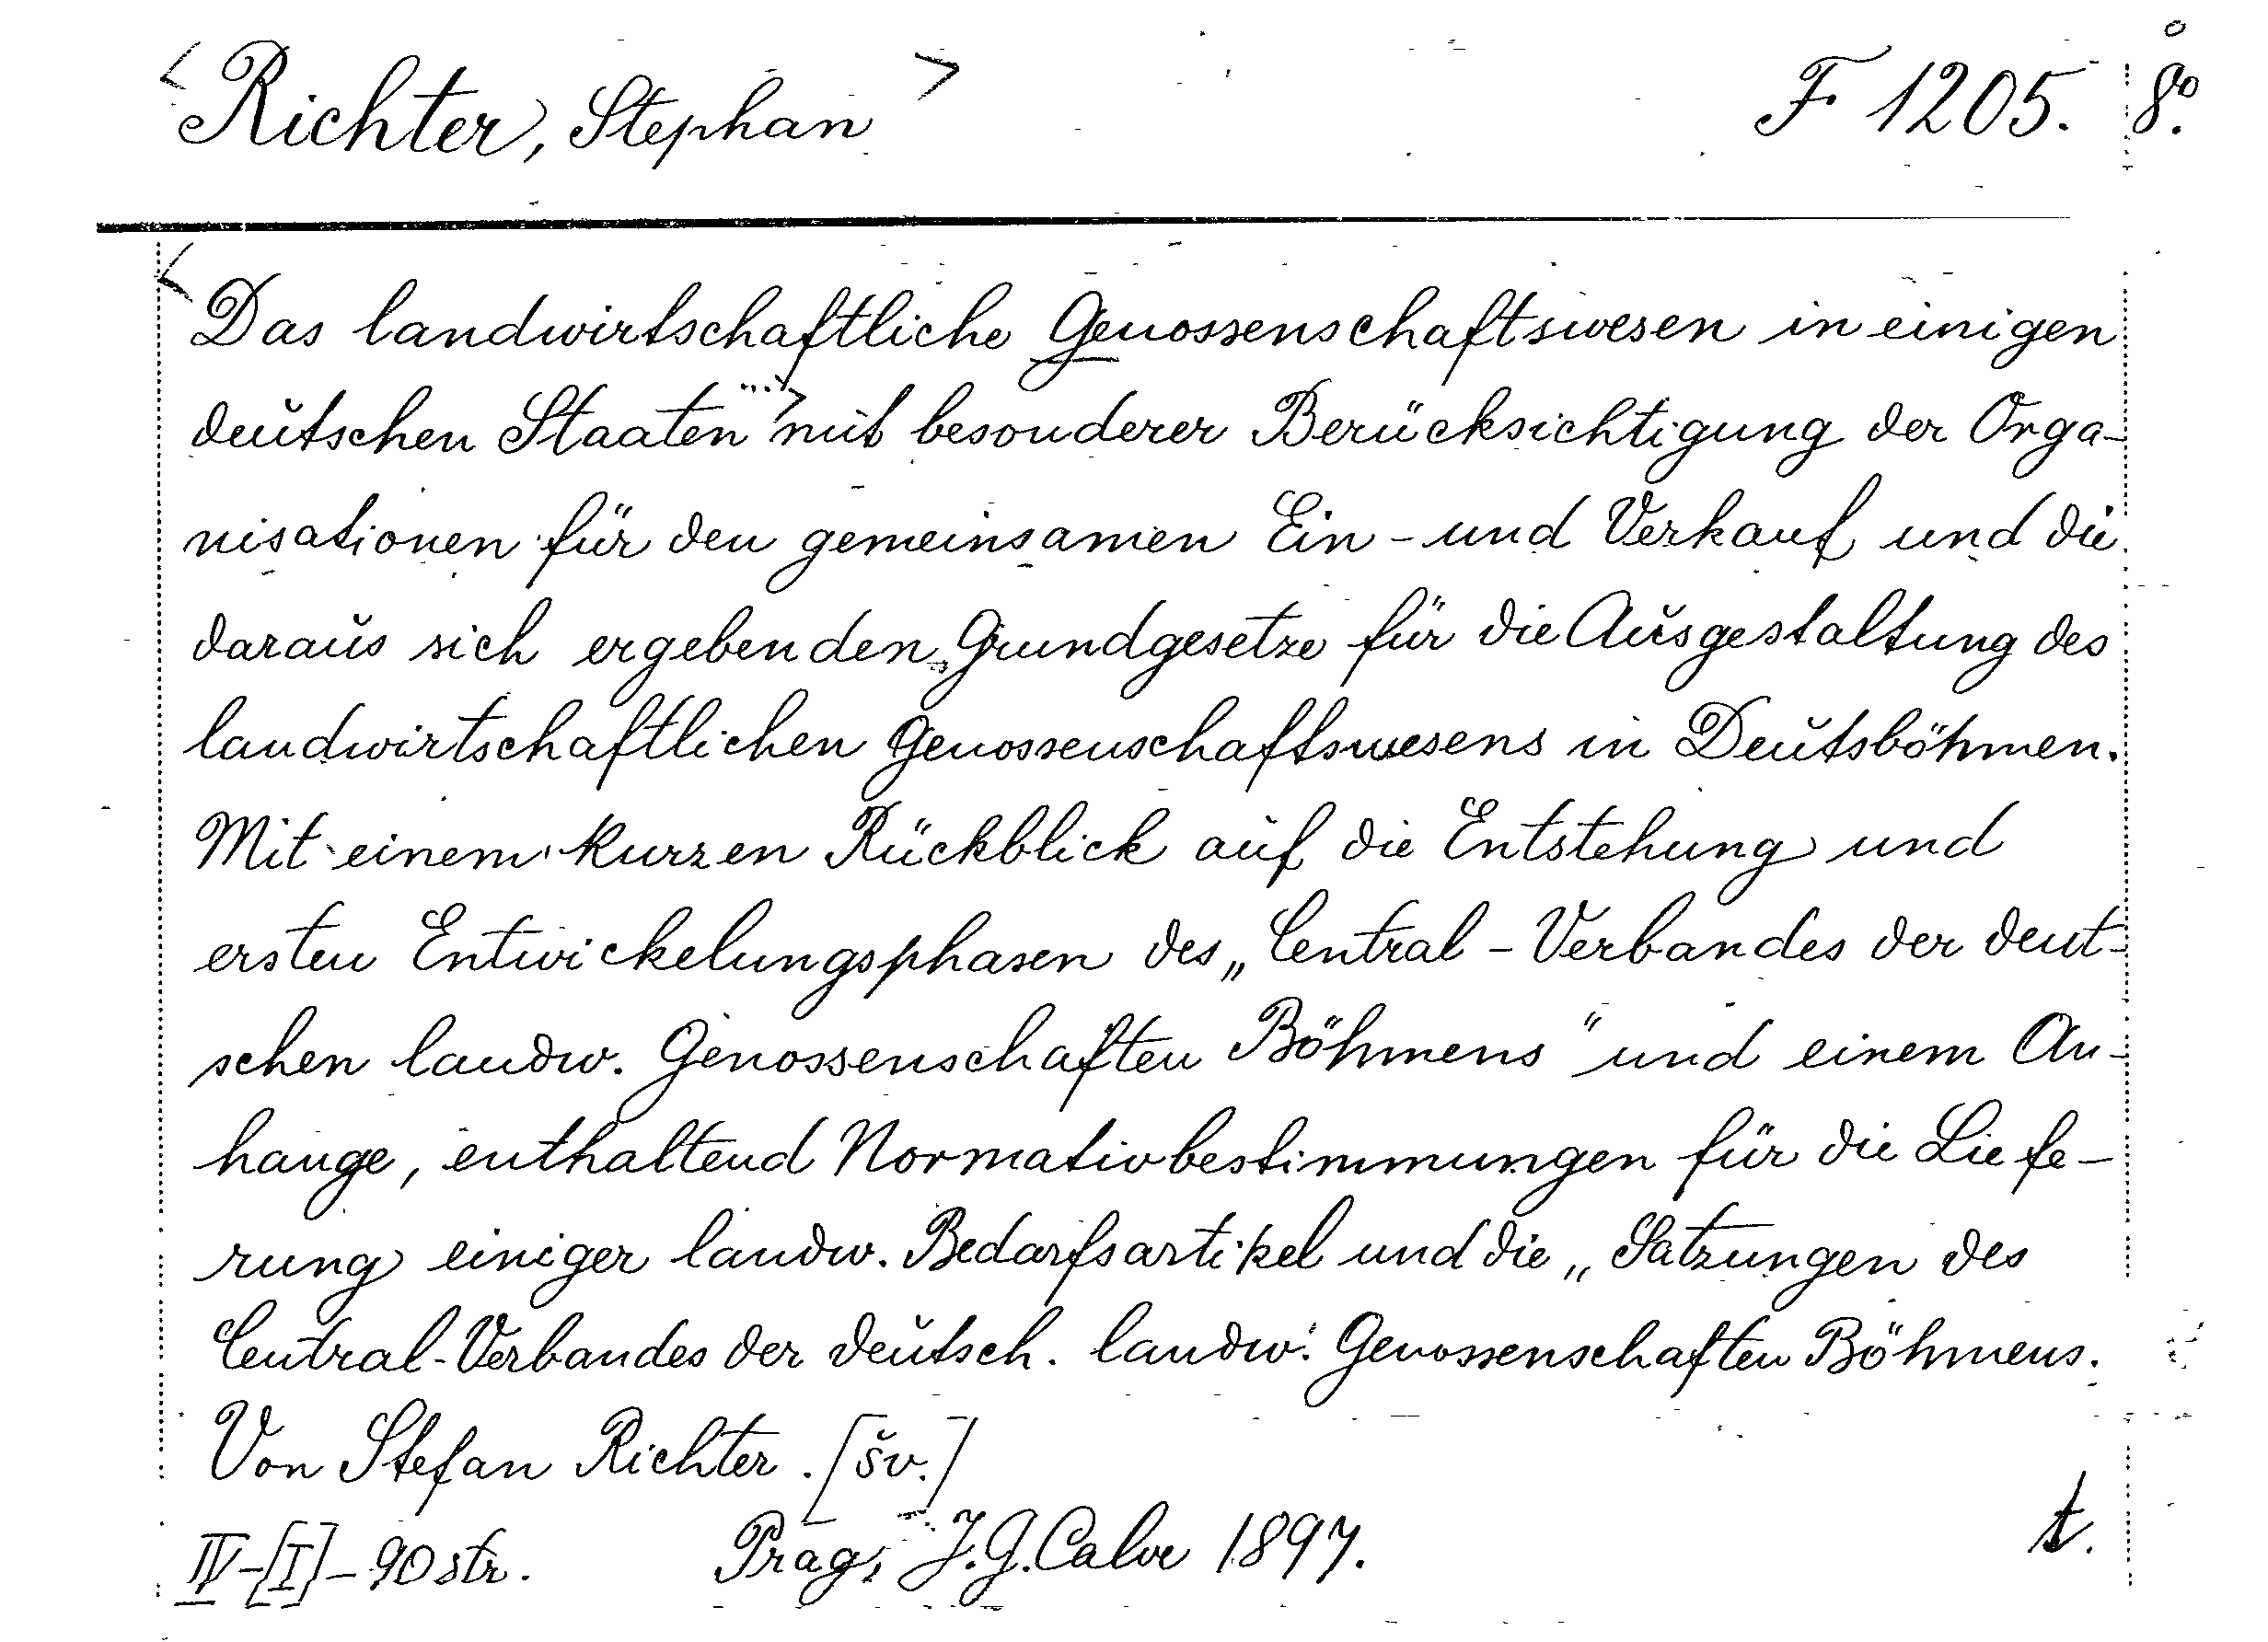 < Richter, Stephan > F 1205. 8°.
< Das landwirtschaftliche Genossenschaftswesen in einigen
deutschen Staaten ...> mit besonderer Berücksichtigung der Orga-
nisationen für den gemeinsamen Ein- und Verkauf und die
daraus sich ergebenden Grundgesetze für die Ausgestaltung des
landwirtschaftlichen Genossenschaftswesens in Deutsböhmen.
Mit einem kurzen Rückblick auf die Entstehung und
ersten Entwickelungsphasen des „Central-Verbandes der deut-
schen landw. Genossenschaften Böhmens" und einem An-
hange, enthaltend Normativbestimmungen für die Liefe-
rung einiger landw. Bedarfsartikel und die „Satzungen des
Central-Verbandes der deutsch. landw. Genossenschaften Böhmens.
Von Stefan Richter. [šv.]
IV-[I]-90 str. Prag, J.G. Calve 1897. t.